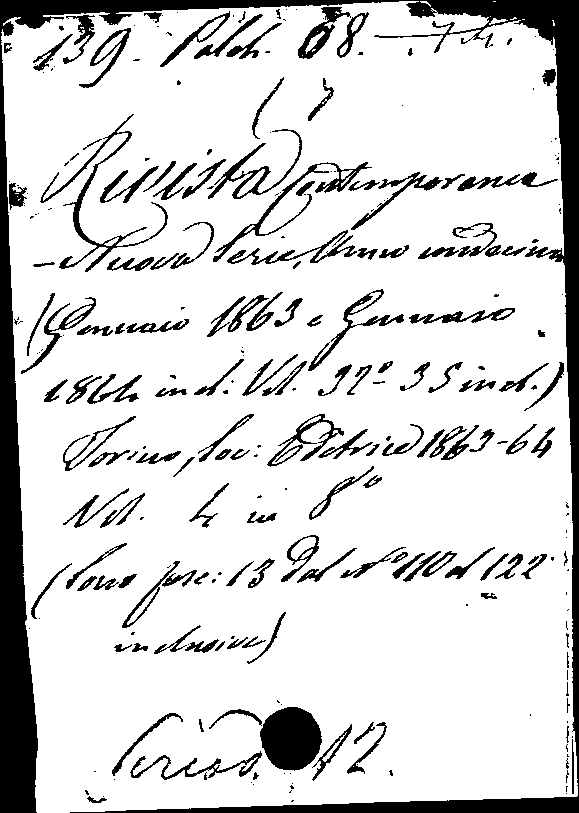 139. Palch. 68. 74.
( 7
Rivista Contemporanea
- Nuova Serie, Anno undecimo
(Gennaio 1863 e Gennaio
1864 incl: Vol. 32º - 35 incl.)
Torino, Soc: Editrice 1863-64
Vol. 4 in 8vo
(Sono fasc: 13 Dal Nº 110 al 122
inclusive)
Period. 12.